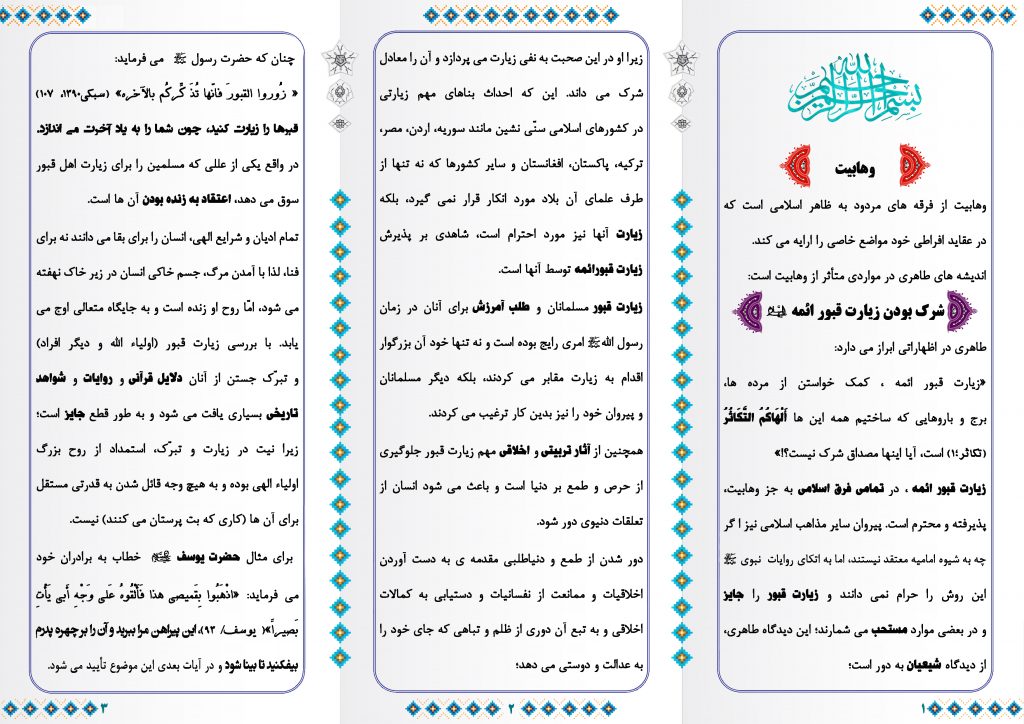 بسم الله الرحمن الرحیم
وهابیت
وهابیت از فرقه های مردود به ظاهر اسلامی است که
در عقاید افراطی خود مواضع خاصی را ارایه می کند.
اندیشه های طاهری در مواردی متأثر از وهابیت است:
شرک بودن زیارت قبور ائمه
طاهری در اظهاراتی ابراز می دارد:
«زیارت قبور ائمه ، کمک خواستن از مرده ها،
برج و باروهایی که ساختیم همه این ها أَلْهَاكُمُ التَّكَاثُرُ
(تکاثر؛۱) است، آیا اینها مصداق شرک نیست؟!»
زیارت قبور ائمه ، در تمامی فرق اسلامی به جز وهابیت،
پذیرفته و محترم است. پیروان سایر مذاهب اسلامی نیز ا گر
چه به شیوه امامیه معتقد نیستند، اما به اتکای روایات نبوی ﷺ
این روش را حرام نمی دانند و زیارت قبور را جایز
و در بعضی موارد مستحب می شمارند؛ این دیدگاه طاهری،
از دیدگاه شیعیان به دور است؛
۱
زیرا او در این صحبت به نفی زیارت می پردازد و آن را معادل
شرک می داند. این که احداث بناهای مهم زیارتی
در کشورهای اسلامی سنّی نشین مانند سوریه، اردن، مصر،
ترکیه، پاکستان، افغانستان و سایر کشورها که نه تنها از
طرف علمای آن بلاد مورد انکار قرار نمی گیرد، بلکه
زیارت آنها نیز مورد احترام است، شاهدی بر پذیرش
زیارت قبورائمه توسط آنها است.
زیارت قبور مسلمانان و طلب آمرزش برای آنان در زمان
رسول الله ﷺ امری رایج بوده است و نه تنها خود آن بزرگوار
اقدام به زیارت مقابر می کردند، بلکه دیگر مسلمانان
و پیروان خود را نیز بدین کار ترغیب می کردند.
همچنین از آثار تربیتی و اخلاقی مهم زیارت قبور جلوگیری
از حرص و طمع بر دنیا است و باعث می شود انسان از
تعلقات دنیوی دور شود.
دور شدن از طمع و دنیاطلبی مقدمه ی به دست آوردن
اخلاقیات و ممانعت از نفسانیات و دستیابی به کمالات
اخلاقی و به تبع آن دوری از ظلم و تباهی که جای خود را
به عدالت و دوستی می دهد؛
۲
چنان که حضرت رسول ﷺ می فرماید:
« زُوروا القبورَ فَانّها تُذَكِّركُم بالآخره» (سبکی۱۳۹۰، ۱۰۷)
قبرها را زیارت کنید، چون شما را به یاد آخرت می اندازد.
در واقع یکی از عللی که مسلمین را برای زیارت اهل قبور
سوق می دهد، اعتقاد به زنده بودن آن ها است.
تمام ادیان و شرایع الهی، انسان را برای بقا می دانند نه برای
فنا، لذا با آمدن مرگ، جسم خاکی انسان در زیر خاک نهفته
می شود، امّا روح او زنده است و به جایگاه متعالی اوج می
یابد. با بررسی زیارت قبور (اولیاء الله و دیگر افراد)
و تبرّک جستن از آنان دلایل قرآنی و روایات و شواهد
تاریخی بسیاری یافت می شود و به طور قطع جایز است؛
زیرا نیت در زیارت و تبرّک، استمداد از روح بزرگ
اولیاء الهی بوده و به هیچ وجه قائل شدن به قدرتی مستقل
برای آن ها (کاری که بت پرستان می کنند) نیست.
برای مثال حضرت یوسف خطاب به برادران خود
می فرماید: «اذْهَبُوا بِقَمیصی هذا فَأَلْقُوهُ عَلى وَجْهِ أَبی یَأْتِ
بَصیراً»( یوسف/ ۹۳)، این پیراهن مرا ببرید و آن را بر چهره پدرم
بیفکنید تا بینا شود و در آیات بعدی این موضوع تأیید می شود.
۳